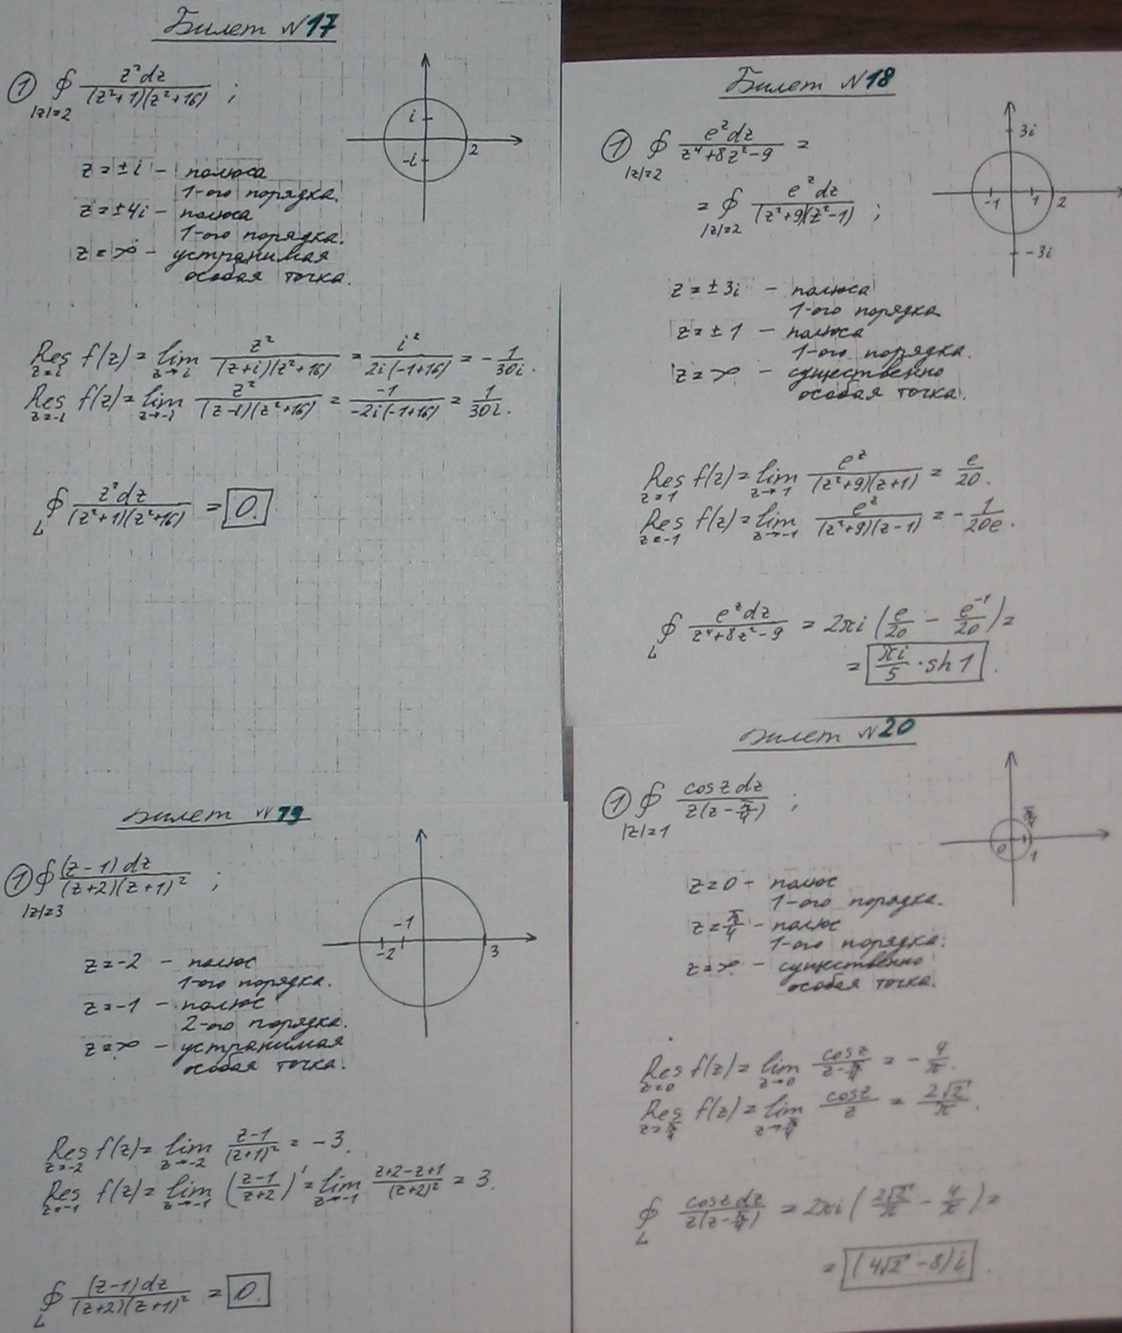 Билет №17
① ∮ z²dz / (z²+1)(z²+16) ;
|z|=2
i
-i
2
z = ±i - полюса
1-ого порядка.
z = ±4i - полюса
1-ого порядка.
z = ∞ - устранимая
особая точка.
Res f(z) = lim z² / (z+i)(z²+16) = i² / 2i(-1+16) = - 1/30i.
z=i z→i
Res f(z) = lim z² / (z-i)(z²+16) = -1 / -2i(-1+16) = 1/30i.
z=-i z→-i
∮ z²dz / (z²+1)(z²+16) = 0.
L
Билет №18
① ∮ e^z dz / z⁴+8z²-9 =
|z|=2
= ∮ e^z dz / (z²+9)(z²-1) ;
|z|=2
3i
-1 1 2
-3i
z = ±3i - полюса
1-ого порядка
z = ±1 - полюса
1-ого порядка.
z = ∞ - существенно
особая точка.
Res f(z) = lim e^z / (z²+9)(z+1) = e/20.
z=1 z→1
Res f(z) = lim e^z / (z²+9)(z-1) = - 1/20e.
z=-1 z→-1
∮ e^z dz / z⁴+8z²-9 = 2πi (e/20 - e⁻¹/20) =
L
= πi/5 · sh1.
Билет №19
① ∮ (z-1)dz / (z+2)(z+1)² ;
|z|=3
-1
-2 3
z = -2 - полюс
1-ого порядка.
z = -1 - полюс
2-ого порядка.
z = ∞ - устранимая
особая точка.
Res f(z) = lim z-1 / (z+1)² = -3.
z=-2 z→-2
Res f(z) = lim (z-1 / z+2)' = lim z+2-z+1 / (z+2)² = 3.
z=-1 z→-1 z→-1
∮ (z-1)dz / (z+2)(z+1)² = 0.
L
Билет №20
① ∮ cosz dz / z(z-π/4) ;
|z|=1
π/4
0 1
z = 0 - полюс
1-ого порядка.
z = π/4 - полюс
1-ого порядка.
z = ∞ - существенно
особая точка.
Res f(z) = lim cosz / z-π/4 = - 4/π.
z=0 z→0
Res f(z) = lim cosz / z = 2√2/π.
z=π/4 z→π/4
∮ cosz dz / z(z-π/4) = 2πi (2√2/π - 4/π) =
L
= (4√2 - 8)i.